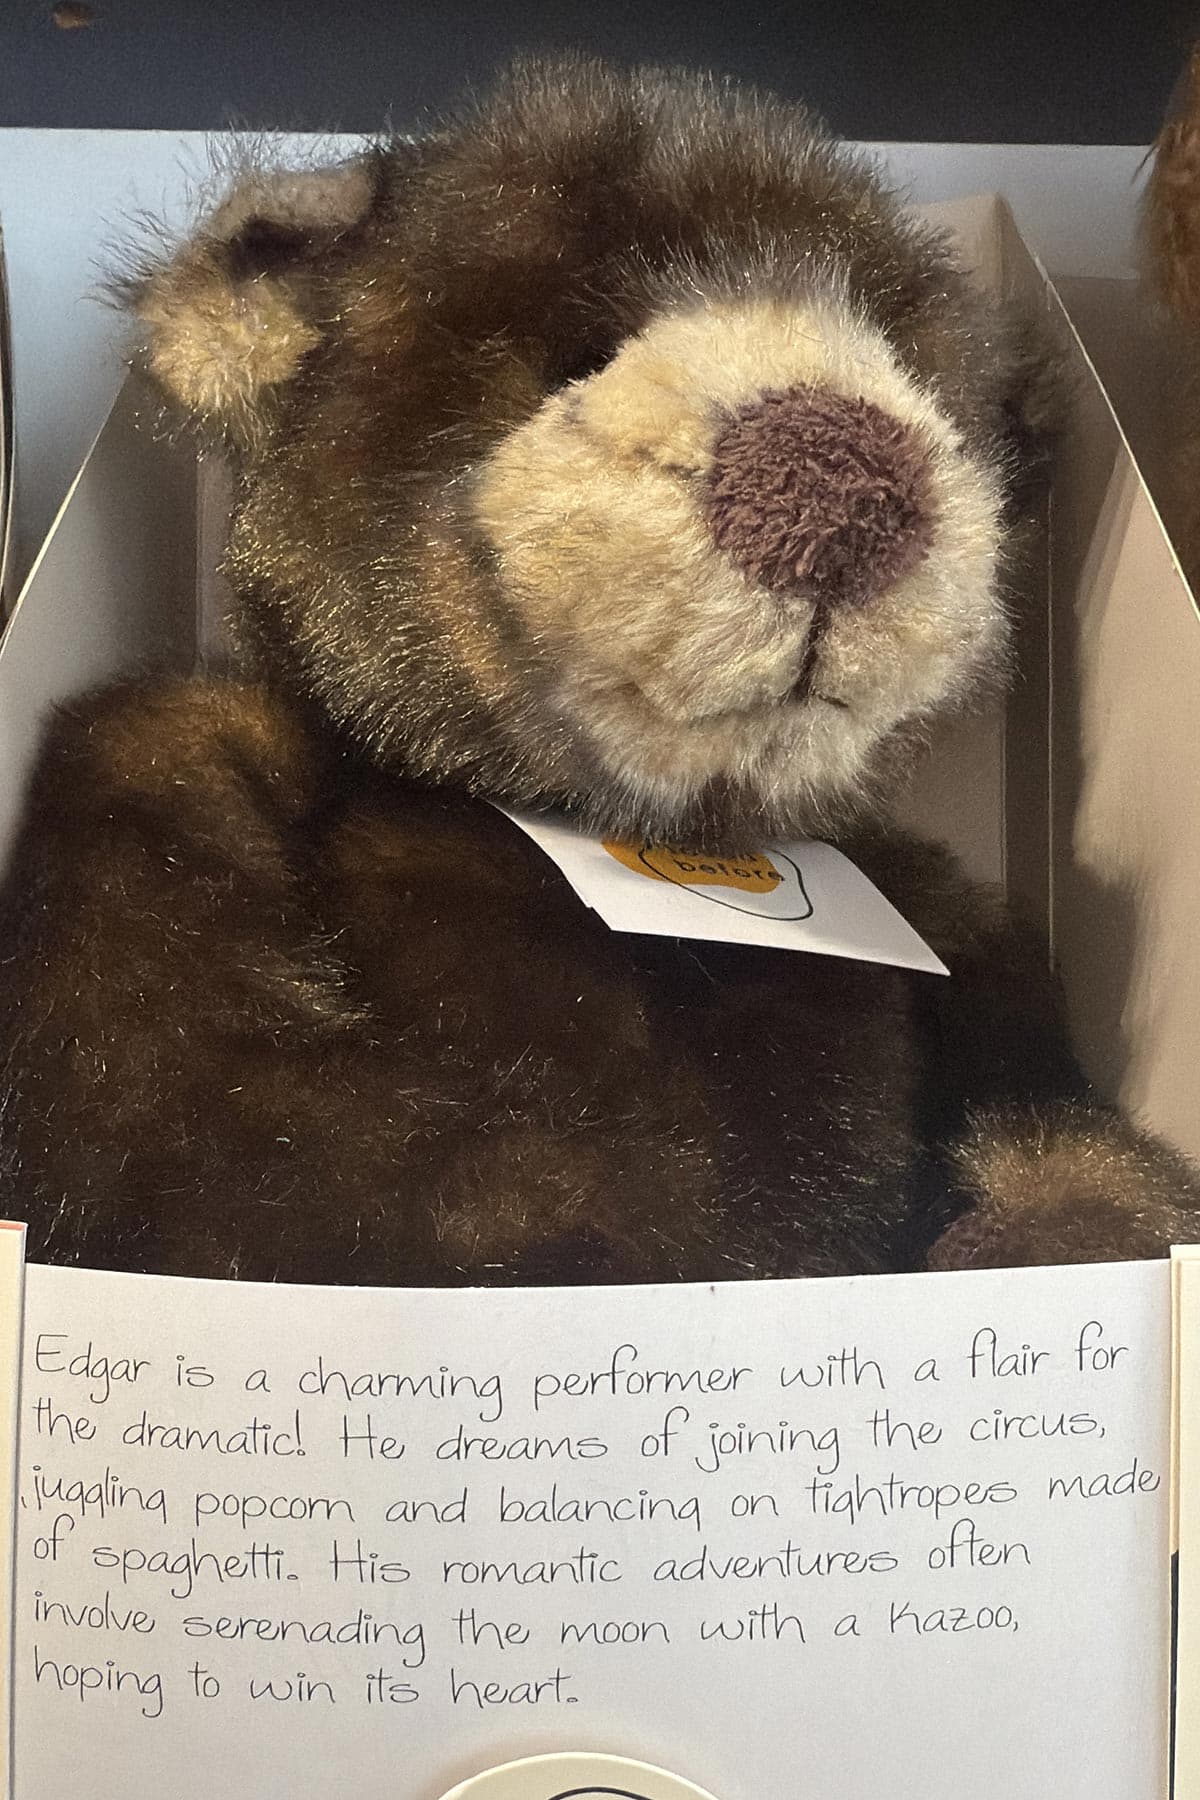 before
Edgar is a charming performer with a flair for
the dramatic! He dreams of joining the circus,
juggling popcorn and balancing on tightropes made
of spaghetti. His romantic adventures often
involve serenading the moon with a kazoo,
hoping to win its heart.